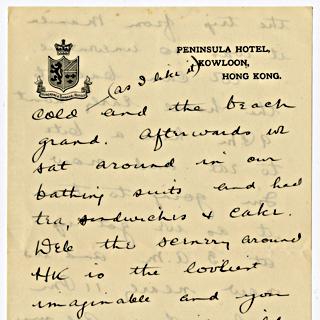 PENINSULA HOTEL,
KOWLOON,
HONG KONG.
(as I like it)
cold and the beach
grand. Afterwards we
sat around in our
bathing suits and had
tea, sandwiches & cake.
Dele the scenery around
HK is the loveliest
imaginable and you